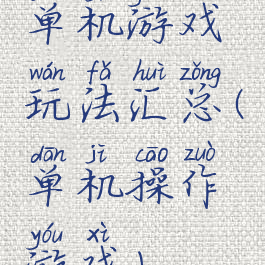 单机游戏
wán fǎ huì zǒng
玩法汇总(
dān jī cāo zuò
单机操作
yóu xì
游戏)